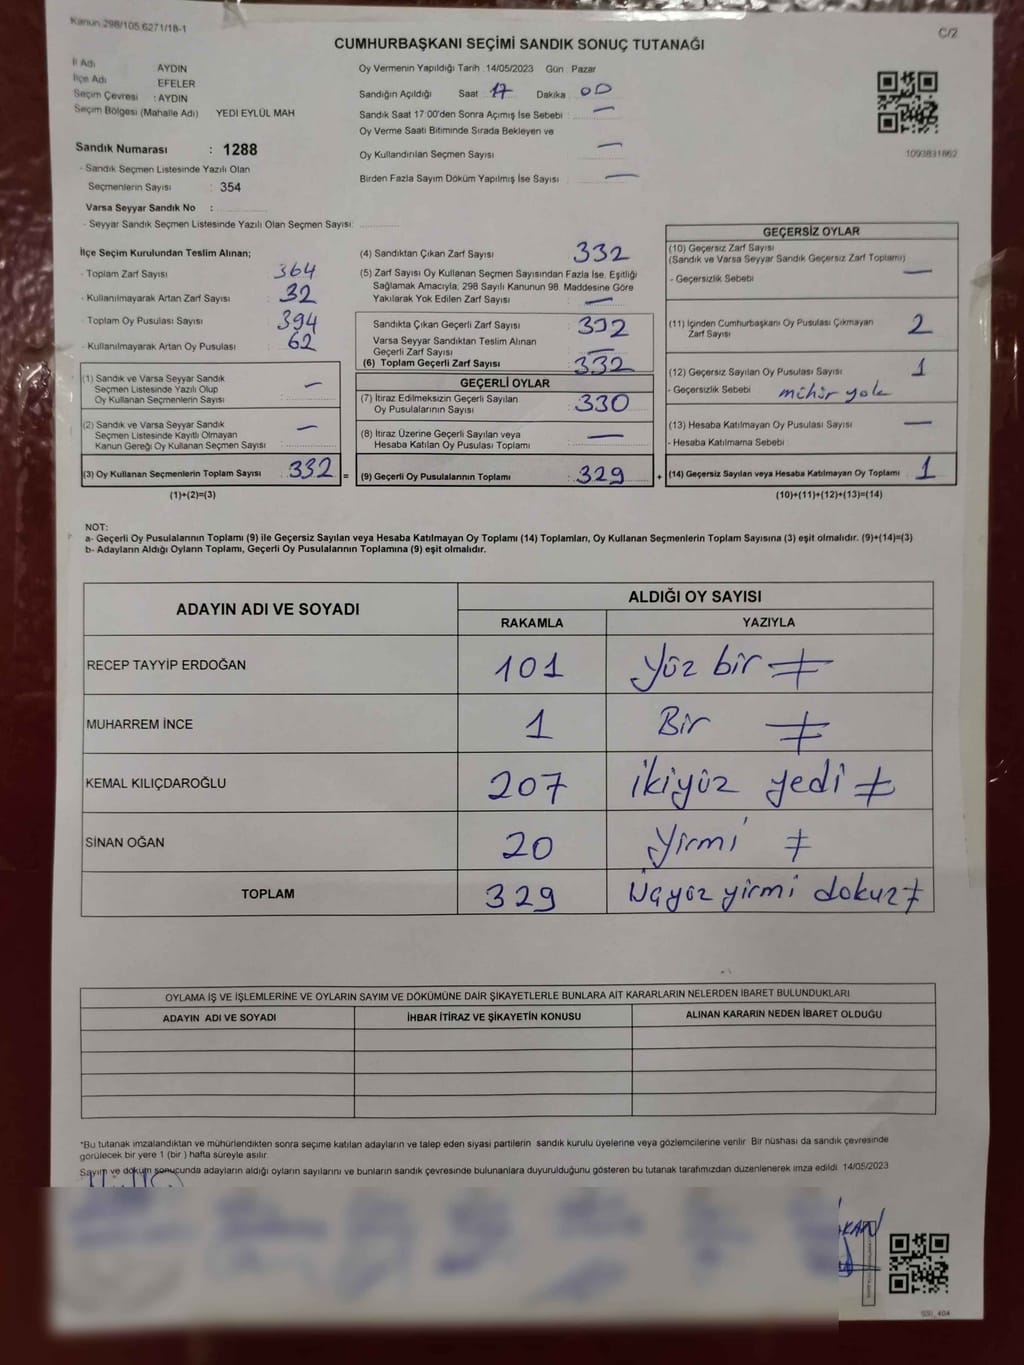 Kanun 298/105 6271/18-1
C/2
CUMHURBAŞKANI SEÇİMİ SANDIK SONUÇ TUTANAĞI
İl Adı AYDIN
İlçe Adı EFELER
Seçim Çevresi : AYDIN
Seçim Bölgesi (Mahalle Adı) YEDİ EYLÜL MAH
Sandık Numarası : 1288
- Sandık Seçmen Listesinde Yazılı Olan
Seçmenlerin Sayısı : 354
Varsa Seyyar Sandık No :
- Seyyar Sandık Seçmen Listesinde Yazılı Olan Seçmen Sayısı:
Oy Vermenin Yapıldığı Tarih :14/05/2023 Gün : Pazar
Sandığın Açıldığı Saat 17 Dakika 00
Sandık Saat 17:00'den Sonra Açımış İse Sebebi : —
Oy Verme Saati Bitiminde Sırada Bekleyen ve
Oy Kullandırılan Seçmen Sayısı —
Birden Fazla Sayım Döküm Yapılmış İse Sayısı : —
1093831862
İlçe Seçim Kurulundan Teslim Alınan;
- Toplam Zarf Sayısı : 364
- Kullanılmayarak Artan Zarf Sayısı : 32
- Toplam Oy Pusulası Sayısı : 394
- Kullanılmayarak Artan Oy Pusulası : 62
(1) Sandık ve Varsa Seyyar Sandık
Seçmen Listesinde Yazılı Olup
Oy Kullanan Seçmenlerin Sayısı : —
(2) Sandık ve Varsa Seyyar Sandık
Seçmen Listesinde Kayıtlı Olmayan
Kanun Gereği Oy Kullanan Seçmen Sayısı : —
(3) Oy Kullanan Seçmenlerin Toplam Sayısı : 332 =
(1)+(2)=(3)
(4) Sandıktan Çıkan Zarf Sayısı : 332
(5) Zarf Sayısı Oy Kullanan Seçmen Sayısından Fazla İse, Eşitliği
Sağlamak Amacıyla, 298 Sayılı Kanunun 98. Maddesine Göre
Yakılarak Yok Edilen Zarf Sayısı : —
Sandıkta Çıkan Geçerli Zarf Sayısı : 332
Varsa Seyyar Sandıktan Teslim Alınan
Geçerli Zarf Sayısı : —
(6) Toplam Geçerli Zarf Sayısı : 332
GEÇERLİ OYLAR
(7) İtiraz Edilmeksizin Geçerli Sayılan
Oy Pusulalarının Sayısı : 330
(8) İtiraz Üzerine Geçerli Sayılan veya
Hesaba Katılan Oy Pusulası Toplamı : —
(9) Geçerli Oy Pusulalarının Toplamı : 329 +
GEÇERSİZ OYLAR
(10) Geçersiz Zarf Sayısı
(Sandık ve Varsa Seyyar Sandık Geçersiz Zarf Toplamı) —
- Geçersizlik Sebebi
(11) İçinden Cumhurbaşkanı Oy Pusulası Çıkmayan
Zarf Sayısı : 2
(12) Geçersiz Sayılan Oy Pusulası Sayısı : 1
- Geçersizlik Sebebi : mühür yok
(13) Hesaba Katılmayan Oy Pusulası Sayısı : —
- Hesaba Katılmama Sebebi :
(14) Geçersiz Sayılan veya Hesaba Katılmayan Oy Toplamı : 1
(10)+(11)+(12)+(13)=(14)
NOT:
a- Geçerli Oy Pusulalarının Toplamı (9) ile Geçersiz Sayılan veya Hesaba Katılmayan Oy Toplamı (14) Toplamları, Oy Kullanan Seçmenlerin Toplam Sayısına (3) eşit olmalıdır. (9)+(14)=(3)
b- Adayların Aldığı Oyların Toplamı, Geçerli Oy Pusulalarının Toplamına (9) eşit olmalıdır.
ADAYIN ADI VE SOYADI
ALDIĞI OY SAYISI
RAKAMLA YAZIYLA
RECEP TAYYİP ERDOĞAN 101 Yüz bir
MUHARREM İNCE 1 Bir
KEMAL KILIÇDAROĞLU 207 ikiyüz yedi
SİNAN OĞAN 20 Yirmi
TOPLAM 329 Üçyüz yirmi dokuz
OYLAMA İŞ VE İŞLEMLERİNE VE OYLARIN SAYIM VE DÖKÜMÜNE DAİR ŞİKAYETLERLE BUNLARA AİT KARARLARIN NELERDEN İBARET BULUNDUKLARI
ADAYIN ADI VE SOYADI İHBAR İTİRAZ VE ŞİKAYETİN KONUSU ALINAN KARARIN NEDEN İBARET OLDUĞU
*Bu tutanak imzalandıktan ve mühürlendikten sonra seçime katılan adayların ve talep eden siyasi partilerin sandık kurulu üyelerine veya gözlemcilerine verilir. Bir nüshası da sandık çevresinde
görülecek bir yere 1 (bir ) hafta süreyle asılır.
Sayım ve döküm sonucunda adayların aldığı oyların sayılarını ve bunların sandık çevresinde bulunanlara duyurulduğunu gösteren bu tutanak tarafımızdan düzenlenerek imza edildi. 14/05/2023